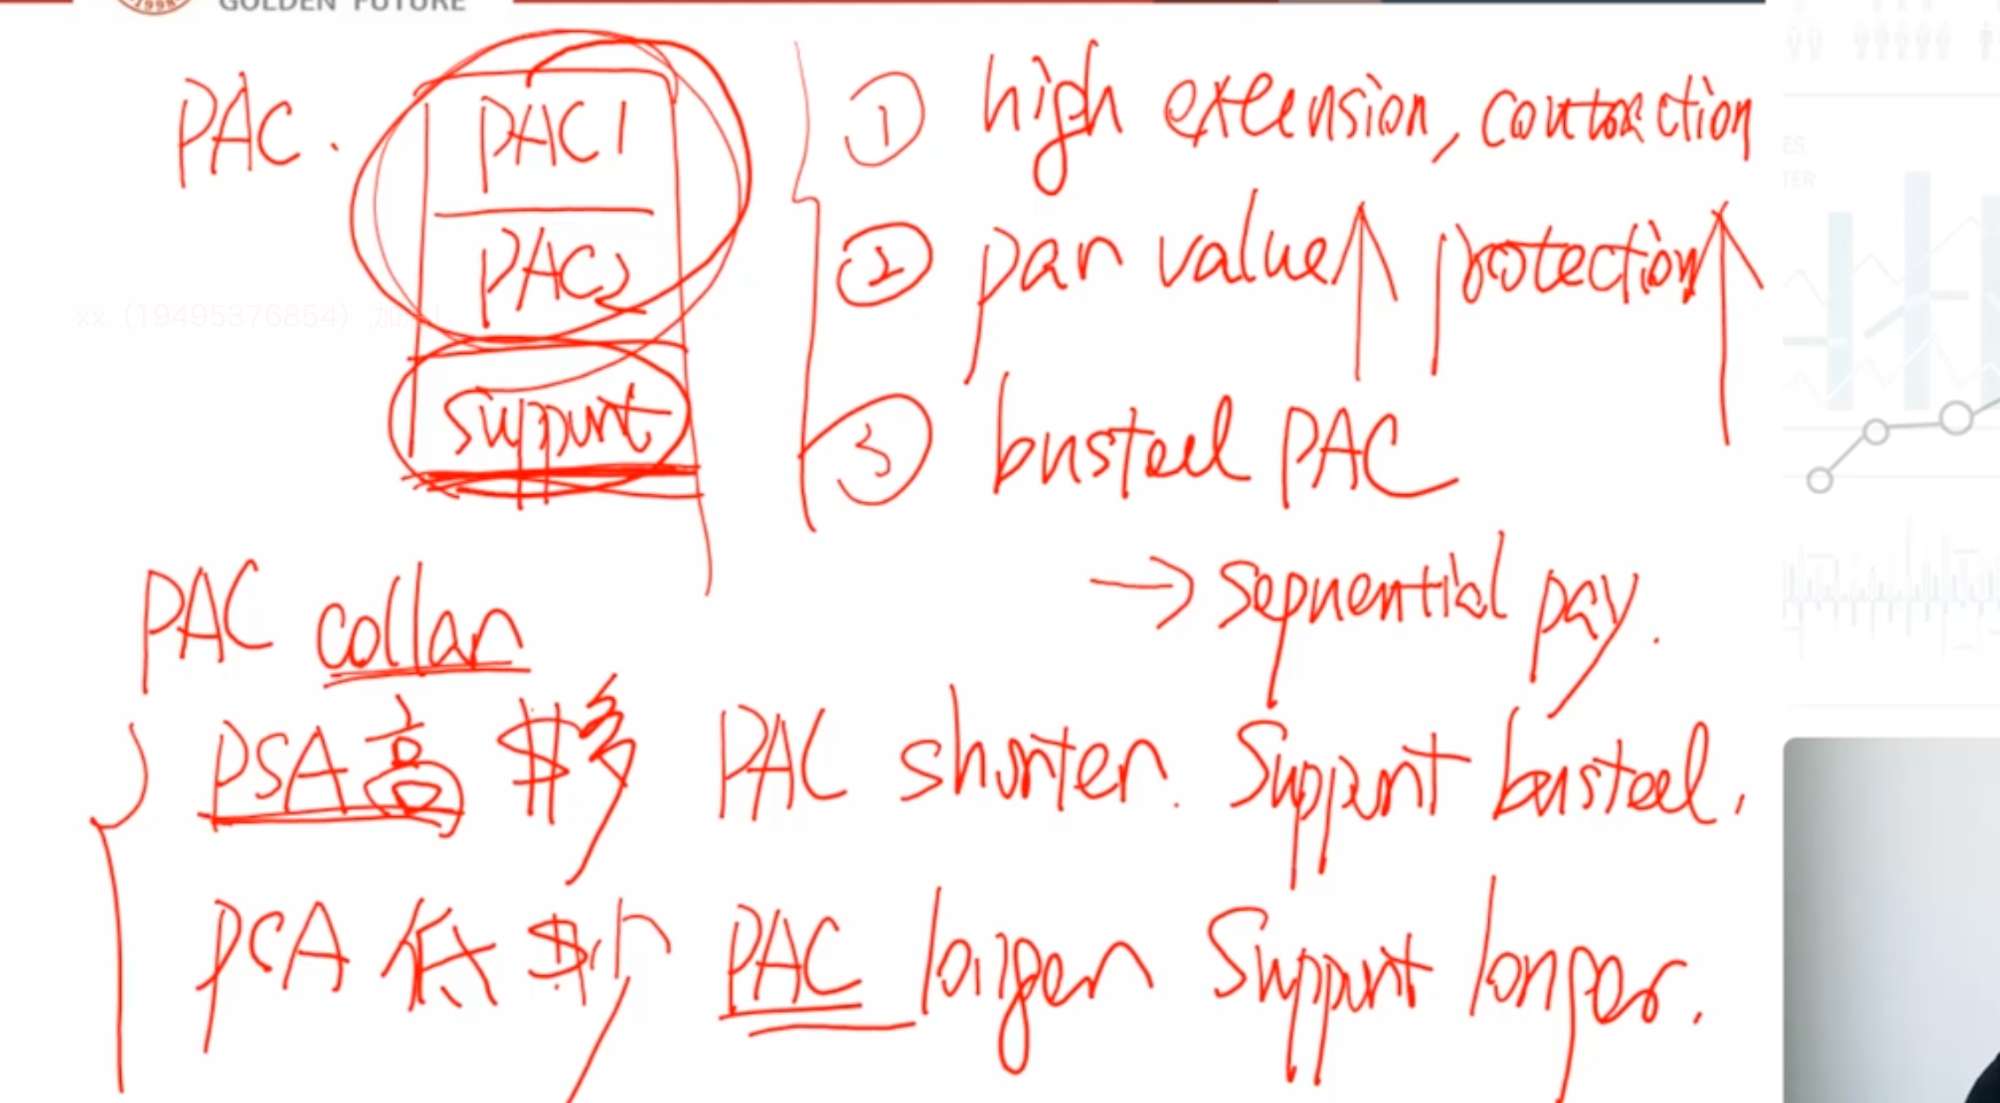 GOLDEN FUTURE
PAC.
PAC1
PAC2
support
① high extension, contraction
② par value↑ protection↑
③ busted PAC
→ sequential pay.
PAC collar
PSA高 $多 PAC shorter. Support busted.
PSA低 $少 PAC longer Support longer.